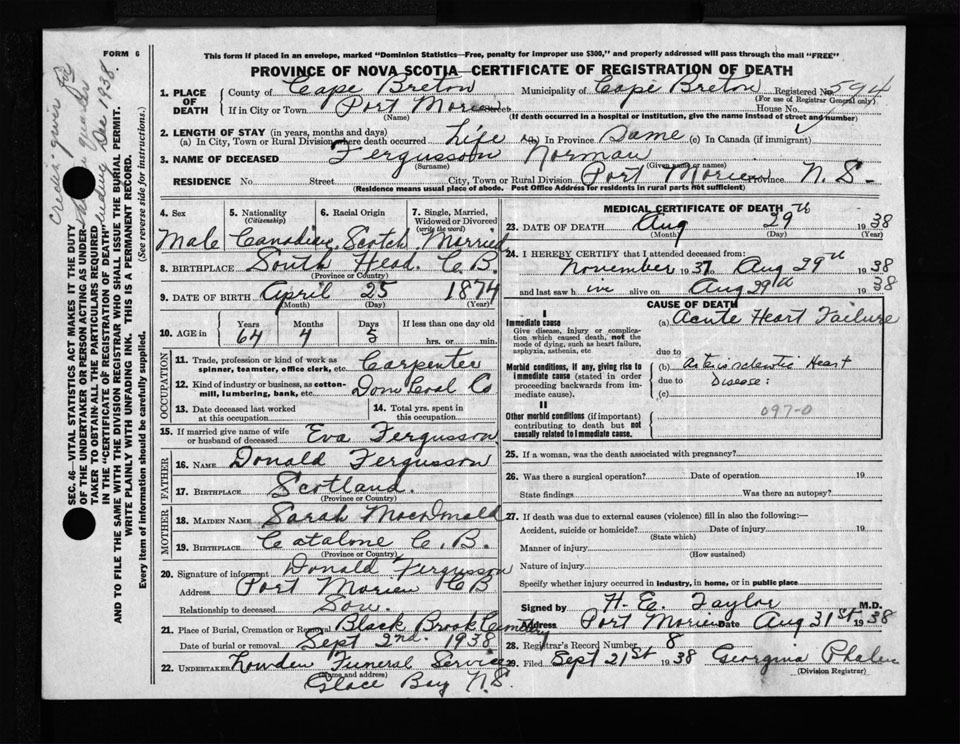 FORM 6
This form if placed in an envelope, marked "Dominion Statistics—Free, penalty for improper use $300," and properly addressed will pass through the mail "FREE"
PROVINCE OF NOVA SCOTIA—CERTIFICATE OF REGISTRATION OF DEATH
1. PLACE OF DEATH
County of Cape Breton Municipality of Cape Breton Registered No 594
(For use of Registrar General only)
If in City or Town Port Morien House No.
(Name) (If death occurred in a hospital or institution, give the name instead of street and number)
2. LENGTH OF STAY (in years, months and days)
(a) In City, Town or Rural Division where death occurred Life (b) In Province Same (c) In Canada (if immigrant)
3. NAME OF DECEASED Fergusson Norman
(Surname) (Given name or names)
RESIDENCE No. Street City, Town or Rural Division Port Morien Province N.S.
(Residence means usual place of abode. Post Office Address for residents in rural parts not sufficient)
4. Sex
5. Nationality (Citizenship)
6. Racial Origin
7. Single, Married, Widowed or Divorced (write the word)
Male Canadian Scotch Married
8. BIRTHPLACE South Head. C.B.
(Province or Country)
9. DATE OF BIRTH April 25 1874
(Month) (Day) (Year)
10. AGE in Years Months Days If less than one day
64 4 5 hrs. or min.
OCCUPATION
11. Trade, profession or kind of work as spinner, teamster, office clerk, etc. Carpenter
12. Kind of industry or business, as cotton-mill, lumbering, bank, etc. Dom Coal Co
13. Date deceased last worked at this occupation
14. Total yrs. spent in this occupation
15. If married give name of wife or husband of deceased Eva Fergusson
FATHER
16. NAME Donald Fergusson
17. BIRTHPLACE Scotland.
(Province or Country)
MOTHER
18. MAIDEN NAME Sarah MacDonald
19. BIRTHPLACE Catalone C.B.
(Province or Country)
20. Signature of informant Donald Fergusson
Address Port Morien CB
Relationship to deceased Son.
21. Place of Burial, Cremation or Removal Black Brook Cemetery
Date of burial or removal Sept 2nd. 1938
22. UNDERTAKER Lowden Funeral Service
(Name and address)
Glace Bay N.S.
MEDICAL CERTIFICATE OF DEATH
23. DATE OF DEATH Aug 29th 1938
(Month) (Day) (Year)
24. I HEREBY CERTIFY that I attended deceased from:
November 1937 to Aug 29th 1938
and last saw him alive on Aug 29th 1938
CAUSE OF DEATH
I
Immediate cause (a) Acute Heart Failure
Give disease, injury or complication which caused death, not the mode of dying, such as heart failure, asphyxia, asthenia, etc
due to
Morbid conditions, if any, giving rise to immediate cause (stated in order proceeding backwards from immediate cause).
(b) Arteriosclerotic Heart
due to Disease:
(c)
II
097-0
Other morbid conditions (if important) contributing to death but not causally related to immediate cause.
25. If a woman, was the death associated with pregnancy?
26. Was there a surgical operation? Date of operation 19
State findings Was there an autopsy?
27. If death was due to external causes (violence) fill in also the following:—
Accident, suicide or homicide? Date of injury 19
(State which)
Manner of injury
(How sustained)
Nature of injury
Specify whether injury occurred in industry, in home, or in public place
Signed by H. E. Taylor M.D.
Address Port Morien Date Aug 31st 1938
28. Registrar's Record Number 8
29. Filed Sept 21st 1938 Georgina Phelan
(Division Registrar)
SEC. 46—VITAL STATISTICS ACT MAKES IT THE DUTY
OF THE UNDERTAKER OR PERSON ACTING AS UNDERTAKER
TO OBTAIN ALL THE PARTICULARS REQUIRED
IN THE "CERTIFICATE OF DEATH"
AND TO FILE THE SAME WITH THE DIVISION REGISTRAR WHO SHALL ISSUE THE BURIAL PERMIT.
WRITE PLAINLY WITH UNFADING INK. THIS IS A PERMANENT RECORD.
Every item of information should be carefully supplied. (See reverse side for instructions.)
quarter
Dec 1938.